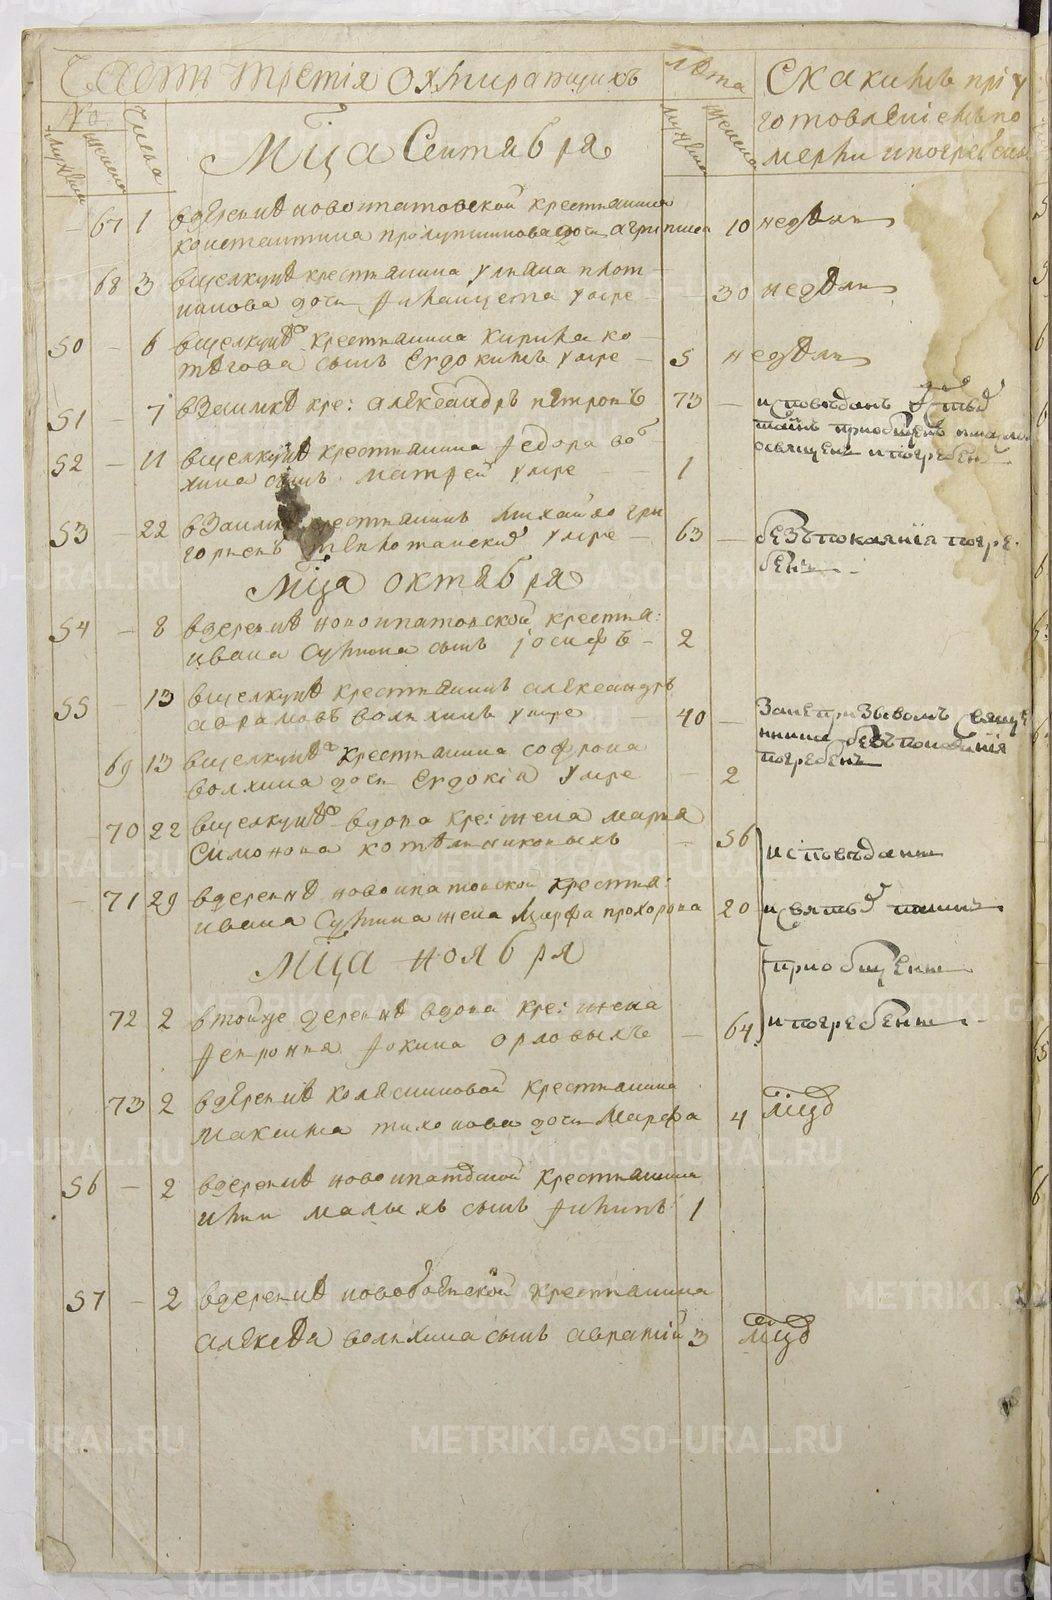 Часть третія Оумирающихъ
Лѣта
Скакимъ пріу
готовленіемъ по
мерли ипогребены
No
Числа
мужеска
женска
мужеска
женска
Мца Сентября
67 1 вдеревнѣ новоипатовской крестьянина
константина дочь агрипина 10 недѣли
68 3 вщелкунѣ крестьянина Ульяна плот
никова дочь умре 30 недѣли
50 6 вщелкунѣ крестьянина Кирила ко
тѣгова сынъ Евдокимъ умре 5 недѣли
51 7 вЗаимкѣ кре: александръ петровъ 73 исповѣданъ
таинъ приобщенъ
освященъ ипогребенъ
52 11 вщелкунѣ крестьянина Федора вол
хина сынъ матфей умре 1
53 22 взаимкѣ крестьянинъ михайло гри
горьевъ умре 63 безъпокаянія погре
бенъ
Мца октября
54 8 вдеревнѣ новоипатовской крестья:
ивана сынъ іосифъ 2
55 13 вщелкунѣ крестьянинъ александръ
аврамовъ волхинъ умре 40 Занепризывомъ священ
нника безъ покаянія
погребенъ
69 13 вщелкунѣ крестьянина софрона
волхина дочь Евдокія умре 2
70 22 вщелкунѣ вдова кре: жена марья
Симонова котѣльниковыхъ 56 исповѣданы
71 29 вдеревнѣ новоипатовской крестья:
ивана жена Марфа прохорова 20 исвятыхъ таинъ
Мца ноября
приобщены
72 2 втойже деревнѣ вдова кре: жена
Февронья Фокина орловыхъ 64 ипогребены
73 2 вдеревнѣ колясниковой крестьянина
максима тихонова дочь Марфа 4 мцъ
56 2 вдеревнѣ новоипатовской крестьянина
ильи малыхъ сынъ Филипъ 1
57 2 вдеревнѣ новобоевской крестьянина
алексѣя волхина сынъ авраамій 3 мцъ
METRIKI.GASO-URAL.RU